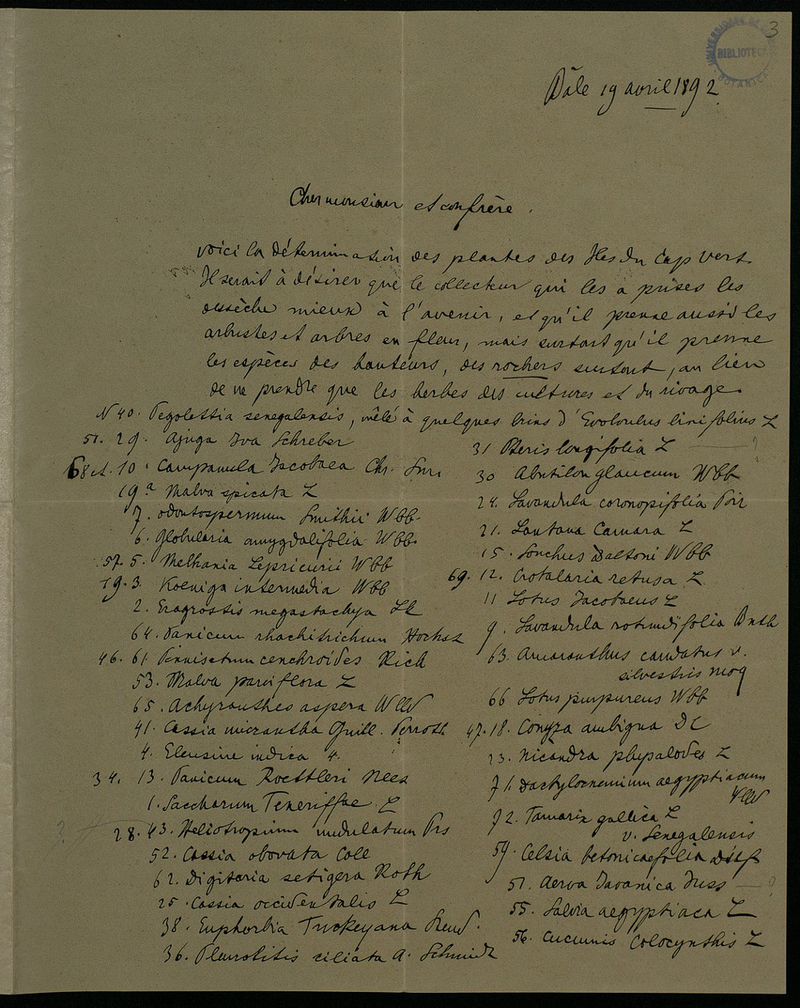 3
UNIVERSIDADE DE
BIBLIOTECA
BOTANICA
Bâle 19 avril 1892
Cher monsieur et confrère.
Voici la détermination des plantes des Iles du Cap vert.
Il serait à désirer que le collecteur qui les a prises les
dessèche mieux à l'avenir, et qu'il prenne aussi les
arbustes et arbres en fleur, mais surtout qu'il prenne
les espèces des hauteurs, des rochers surtout, au lieu
de ne prendre que les herbes des cultures et du rivage.
N 40. Pegolettia senegalensis, mêlé à quelques brins d'Evolvulus linifolius L
51. 29. Ajuga Iva Schreber
68 et 10. Campanula Jacobaea Chr. Sm.
19a Malva spicata L
7. Odontospermum Smithii Wbb
6. Globularia amygdalifolia Wbb.
57. 5. Melhania Leprieurii Wbb
19. 3. Koeniga intermedia Wbb
2. Eragrostis megastachya Lk
64. Panicum rhachitrichum Hochst
46. 61 Pennisetum cenchroides Rich
53. Malva parviflora L
65. Achyranthes aspera Wlld
41. Cassia micrantha Guill. Perrott
4. Eleusine indica
34. 13. Panicum Roettleri Nees
1. Saccharum Teneriffae L
? 28. 43. Heliotropium undulatum
52. Cassia obovata Coll
62. Digitaria setigera Roth
25. Cassia occidentalis L
38. Euphorbia Tuckeyana Steud.
36. ciliata A. Schmidt
31 Pteris longifolia L ?
30 Abutilon glaucum Wbb
24. Lavandula coronopifolia Poir
21. Lantana Camara L
15. Sonchus Daltoni Wbb
69. 12. Crotalaria retusa L
11 Lotus Jacobaeus L
9. Lavandula rotundifolia Bnth
63. Amaranthus caudatus v.
silvestris Moq
66 Lotus purpureus Wbb
47. 18. Conyza ambigua DC
23. Nicandra physalodes L
71. Dactyloctenium aegyptiacum
Wlld
72. Tamarix gallica L
v. Senegalensis
59. Celsia betonicaefolia Desf
51. Aerva Javanica Juss — ?
55. Salvia aegyptiaca L
56. Cucumis Colocynthis L